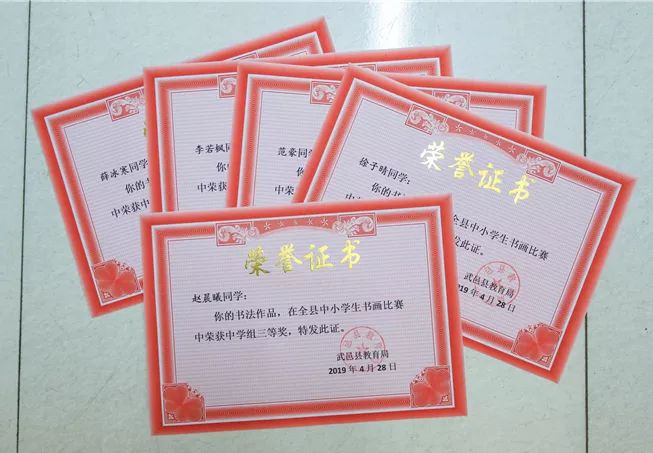 薛冰寒同学
你的书
中荣获中
李若枫同
你的
中荣获
范豪同学
你的
中荣获
荣誉证书
徐子晴同学:
你的书
全县中小学生书画比赛
发此证。
武邑县教育局
2019 年 4 月 28 日
荣誉证书
赵晨曦同学:
你的书法作品,在全县中小学生书画比赛
中荣获中学组三等奖,特发此证。
武邑县教育局
2019 年 4 月 28 日